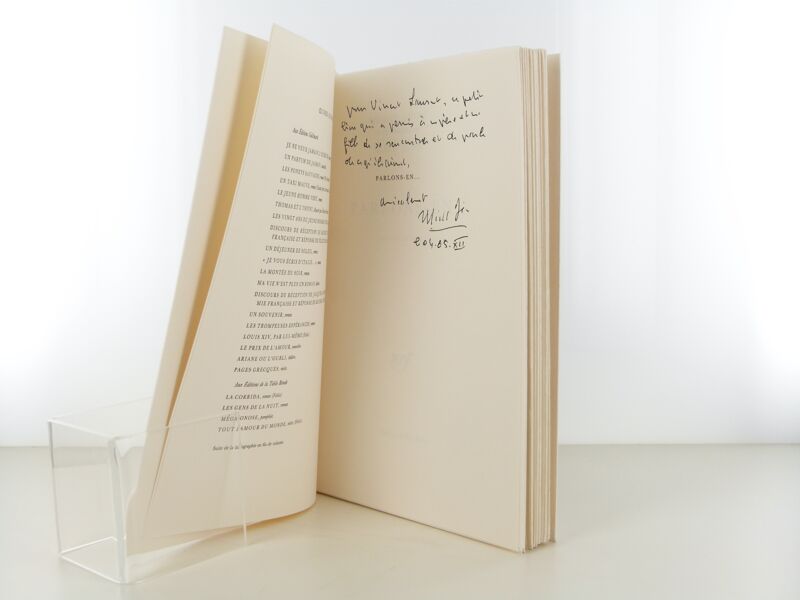 Aux Éditions Gallimard
JE NE VEUX JAMAIS L'OUBLIER
UN PARFUM DE JASMIN
LES PONEYS SAUVAGES
UN TAXI MAUVE
LE JEUNE HOMME VERT
THOMAS ET L'INFINI
LES VINGT ANS DU JEUNE HOMME
DISCOURS DE RÉCEPTION DE
FRANÇAISE ET RÉPONSE DE
UN DÉJEUNER DE SOLEIL, roman
« JE VOUS ÉCRIS D'ITALIE... »
LA MONTÉE DU SOIR, roman
MA VIE N'EST PLUS UN ROMAN
DISCOURS DE RÉCEPTION DE JACQUES
MIE FRANÇAISE ET RÉPONSE DE
UN SOUVENIR, roman
LES TROMPEUSES ESPÉRANCES
LOUIS XIV, PAR LUI-MÊME
LE PRIX DE L'AMOUR, nouvelles
ARIANE OU L'OUBLI, théâtre
PAGES GRECQUES, récits
Aux Éditions de la Table Ronde
LA CORRIDA, roman (Folio)
LES GENS DE LA NUIT, roman
MÉGALONOSE, pamphlet
TOUT L'AMOUR DU MONDE, récits (Folio)
Suite de la bibliographie en fin de volume
pour Vincent Laurent, ce petit
livre qui a permis à un père et une
fille de se rencontrer et de parler
PARLONS-EN...
amicalement
04.05.XII